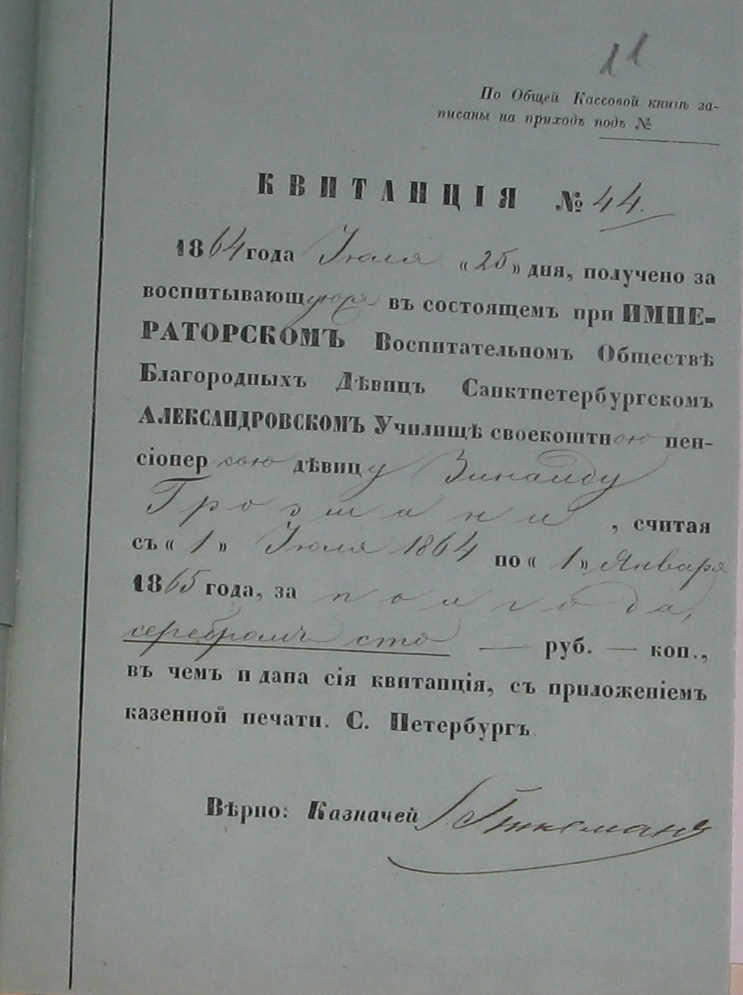 11
По Общей Кассовой книгѣ за-
писаны на приходъ подъ №
КВИТАНЦІЯ № 44.
1864 года Іюля «25» дня, получено за
воспитывающуюся въ состоящемъ при ИМПЕ-
РАТОРСКОМЪ Воспитательномъ Обществѣ
Благородныхъ Дѣвицъ Санктпетербургскомъ
АЛЕКСАНДРОВСКОМЪ Училищѣ своекоштною пен-
сіонеркою дѣвицу Зинаиду
, считая
съ «1» Іюля 1864 по «1» Января
1865 года, за полгода,
серебромъ сто — руб. — коп.,
въ чемъ и дана сія квитанція, съ приложеніемъ
казенной печати. С. Петербургъ.
Вѣрно: Казначей